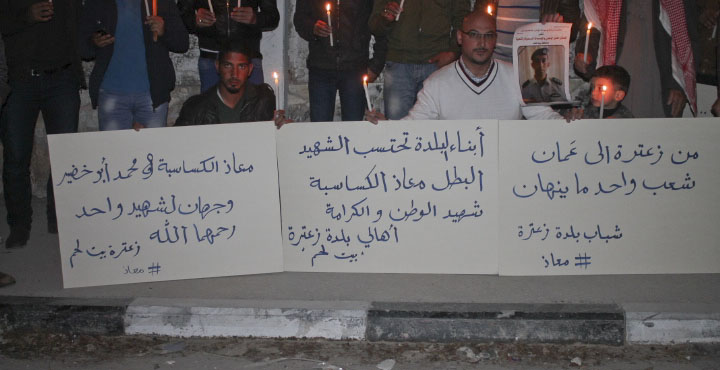 من زعترة الى عمان
شعب واحد ما ينهان
شباب بلدة زعترة
# معاذ
أبناء البلدة تحتسب الشهيد
البطل معاذ الكساسبة
شهيد الوطن والكرامة
أهالي بلدة زعترة
بيت لحم
معاذ الكساسبة محمد أبو خضير
وجهان لشهيد واحد
رحمهما الله
زعترة بيت لحم
# معاذ